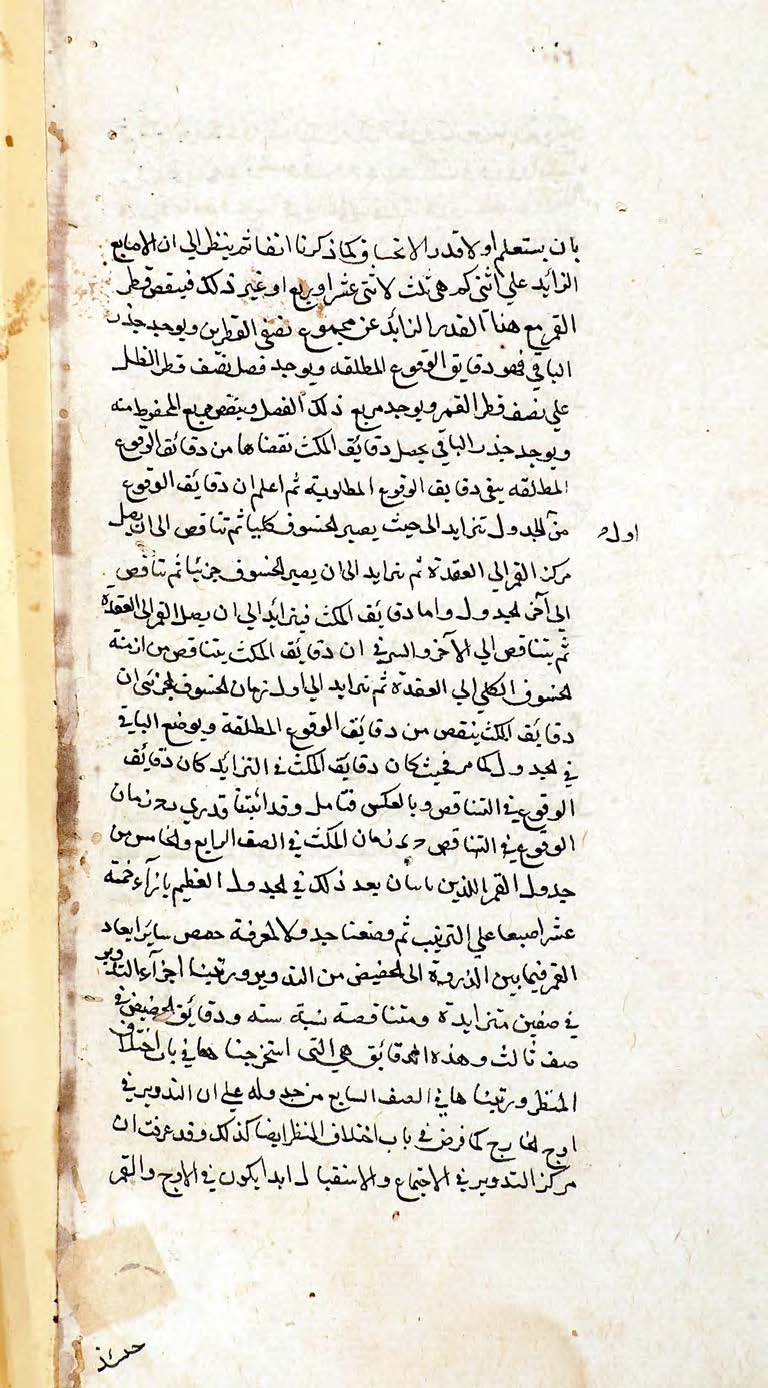 بان يستعلم اولا قدر الانخساف كما ذكرنا انفا ثم ينظر الي ان الاصابع
الزائد علي اثني كم هي ثلث لاثني عشر او ربع او غير ذلك فينقص قطر
القمر مع هذا القدر الزائد عن مجموع نصفي القطرين ويوجد جذر
الباقي فهو دقايق الوقوع المطلقه ويوجد فصل نصف قطر الظل
علي نصف قطر القمر ويوجد مربع ذلك الفصل وينقص مربع المحفوط منه
ويوجد جذر الباقي يحصل دقائق المكث نقصناها من دقائق الوقوع
المطلقه يبقي دقايق الوقوع المطلوبة ثم اعلم ان دقايق الوقوع
من الجدول تتزايد الى حيث يصير الخسوف كليا ثم تناقص الى ان يصل
اول
مركز القمر الي العقدة ثم تتزايد الى ان يصير الخسوف جزئيا ثم تناقص
الي آخر الجدول واما دقايق المكث فيتزائد الي ان يصل القمر الي العقدة
ثم يتناقص الي الآخر والسر في ان دقايق المكث يتناقص من ازمنة
الخسوف الكلي الي العقدة ثم تتزايد الي اول زمان الخسوف الجزئي ان
دقايق المكث ينقص من دقايق الوقوع المطلقة ويوضع الباقي
في الجدول كما مر فحيث كان دقايق المكث في التزايد كان دقائق
الوقوع في التناقص وبالعكس فتامل وقد اثبتنا قدري زمان
الوقوع في التناقص زمان المكث في الصف الرابع والخامس من
جدول القمر اللذين ياتيان بعد ذلك في الجدول العظيم بازآء خمسة
عشر اصبعا علي الترتيب ثم وضعنا جدولا لمعرفة حصص ساير ابعاد
القمر فيما بين الذروة الى الحضيض من التدوير ورتبنا اجزآء التدوير
في صفين متزايدة ومتناقصة ستة ستة ودقائق الحضيض في
صف ثالث وهذه الدقائق هي التي استخرجناها في باب اختلاف
المنظر ورتبناها في الصف السابع من جدوله علي ان التدوير في
اوج الخارج كما فرض في باب اختلاف المنظر ايضا كذلك وقد عرفت ان
مركز التدوير في الاجتماع والاستقبال ابدا يكون في الاوج والقمر